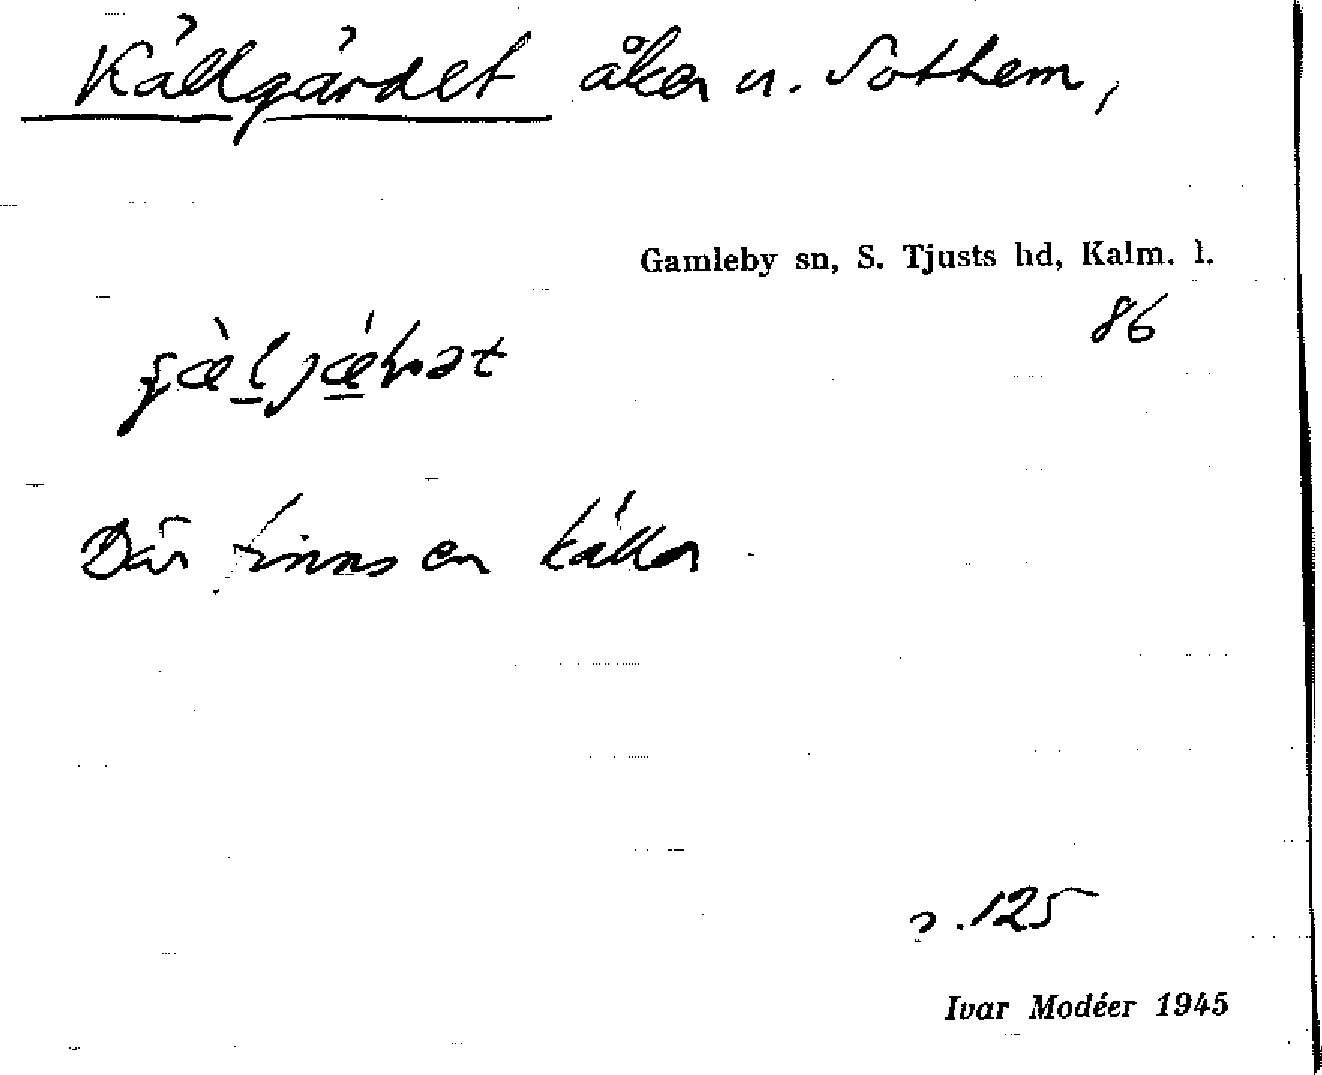 Källgärdet åker u. Sothem,
Gamleby sn, S. Tjusts hd, Kalm. l.
86
Där finns en källa
s. 125
Ivar Modéer 1945